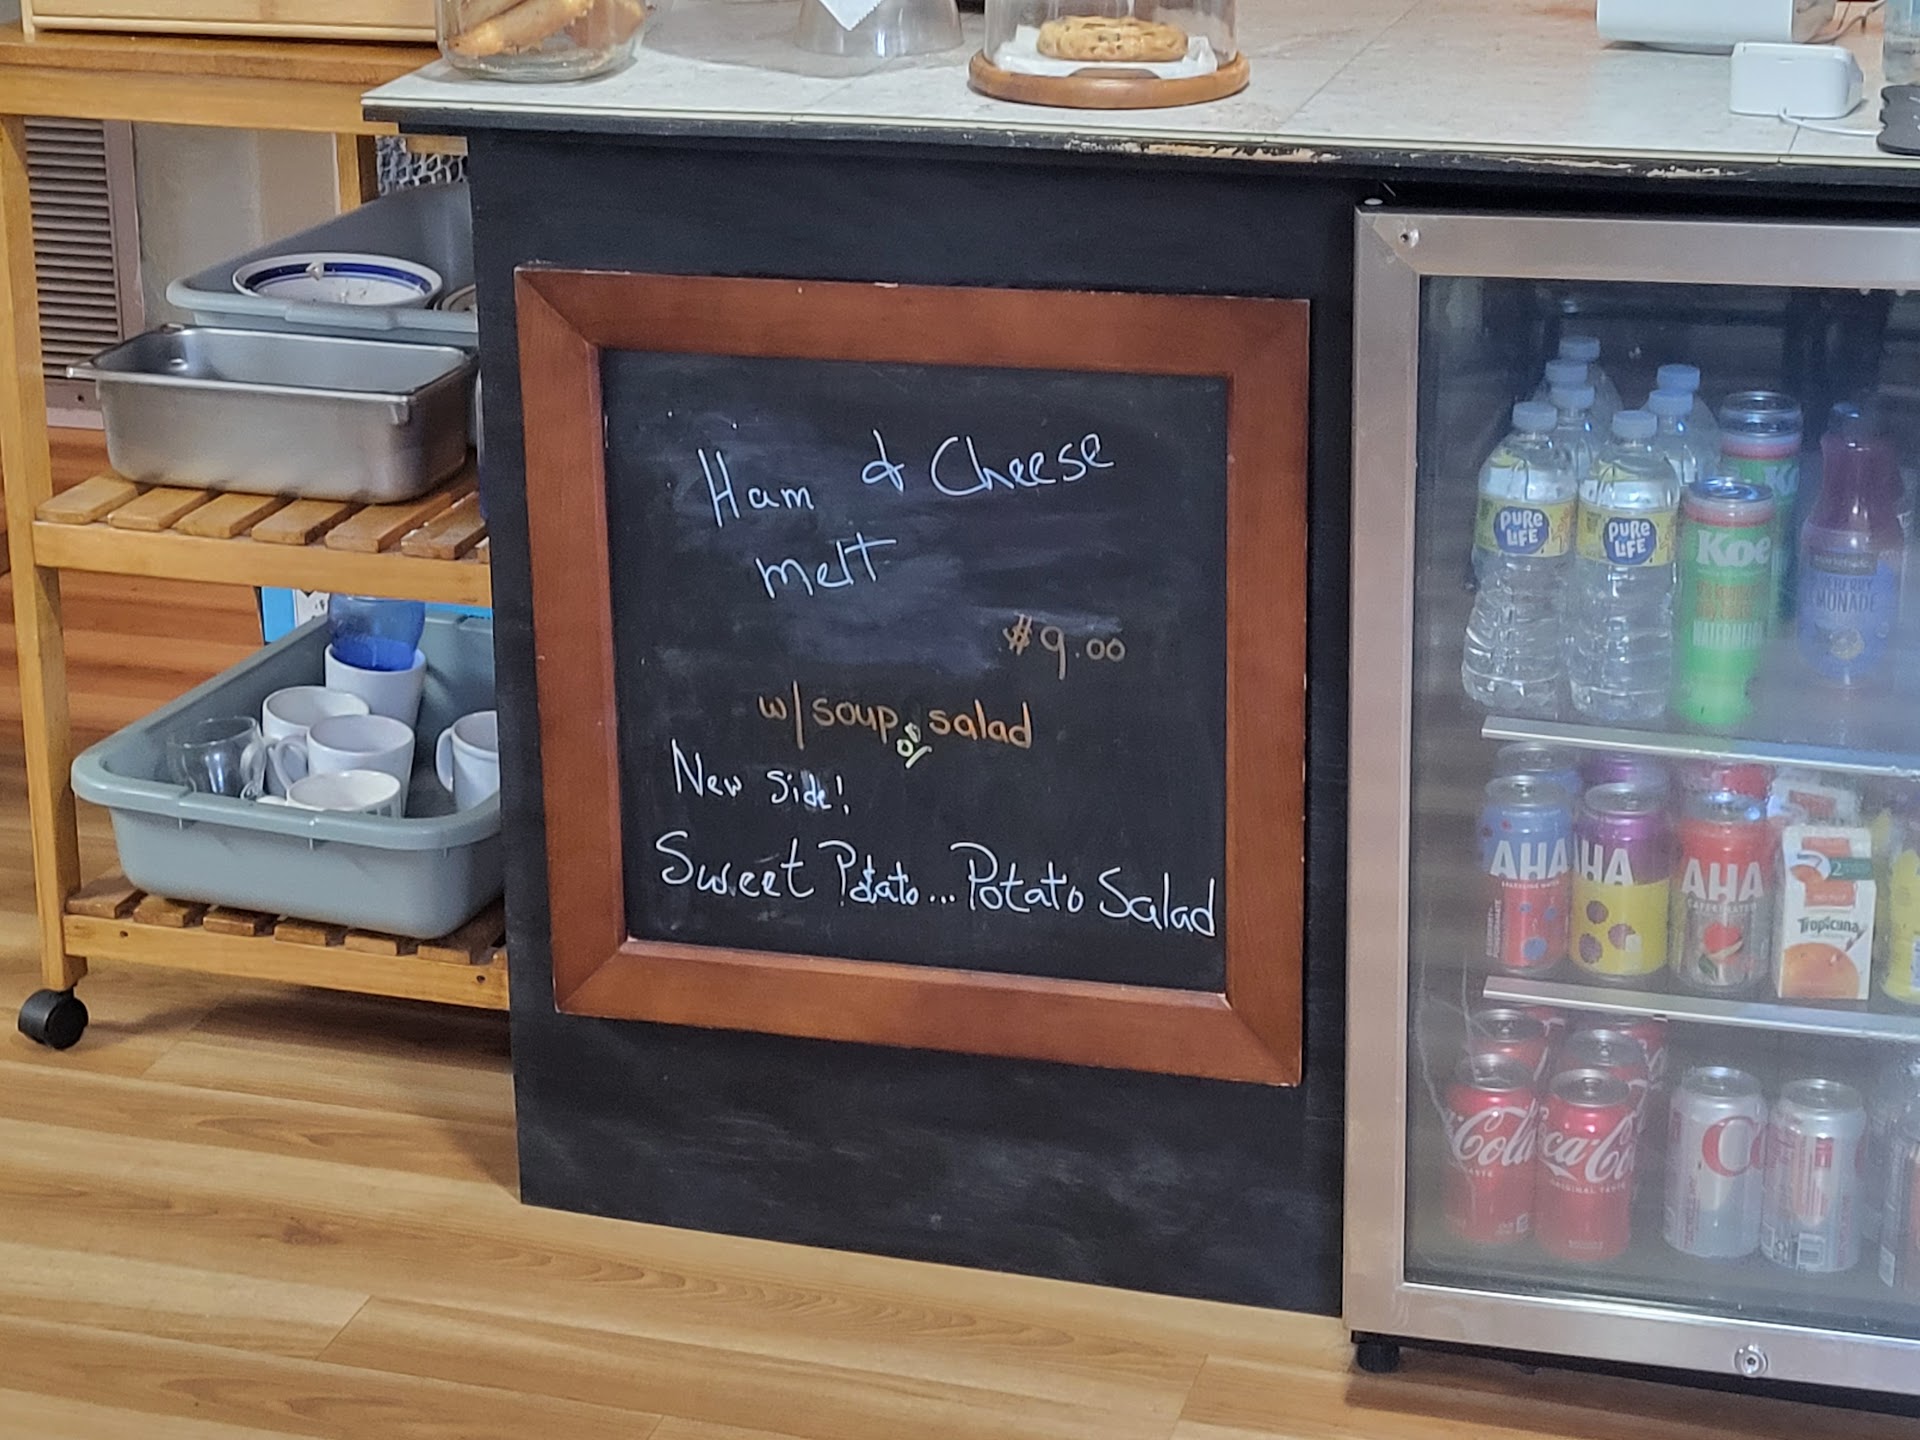 Ham & Cheese
melt
$9.00
w/ soup or salad
New Side!
Sweet Potato... Potato Salad
PURE LiFE
PURE LiFE
Koe
WATERMELON
LEMONADE
AHA
AHA
AHA
Tropicana
Coca-Cola
ORIGINAL TASTE